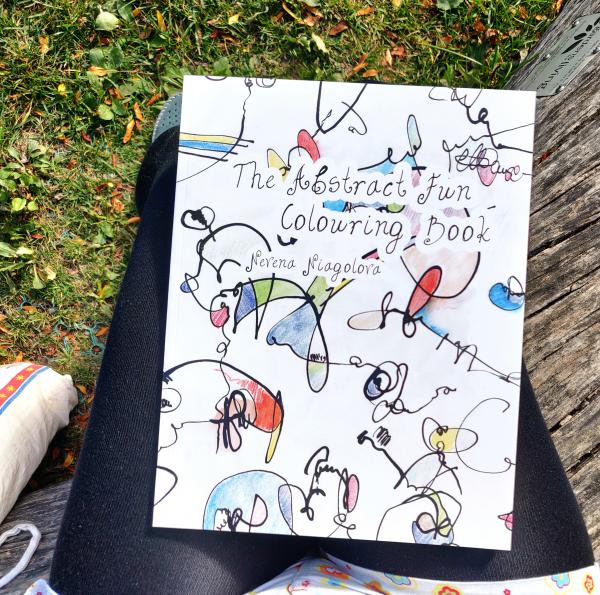 The Abstract Fun
Colouring Book
Nevena Niagolova